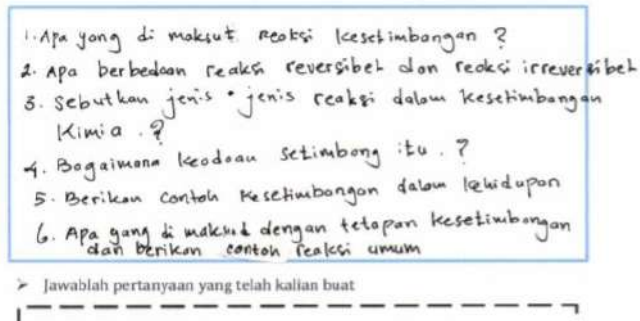 1. Apa yang di maksut reaksi kesetimbangan ?
2. Apa berbedaan reaksi reversibel dan reaksi irreversibel
3. Sebutkan jenis • jenis reaksi dalam kesetimbangan
Kimia . ?
4. Bagaimana keadaan setimbang itu . ?
5. Berikan contoh kesetimbangan dalam kehidupan
6. Apa yang di maksud dengan tetapan kesetimbangan
dan berikan contoh reaksi umum
➢ Jawablah pertanyaan yang telah kalian buat